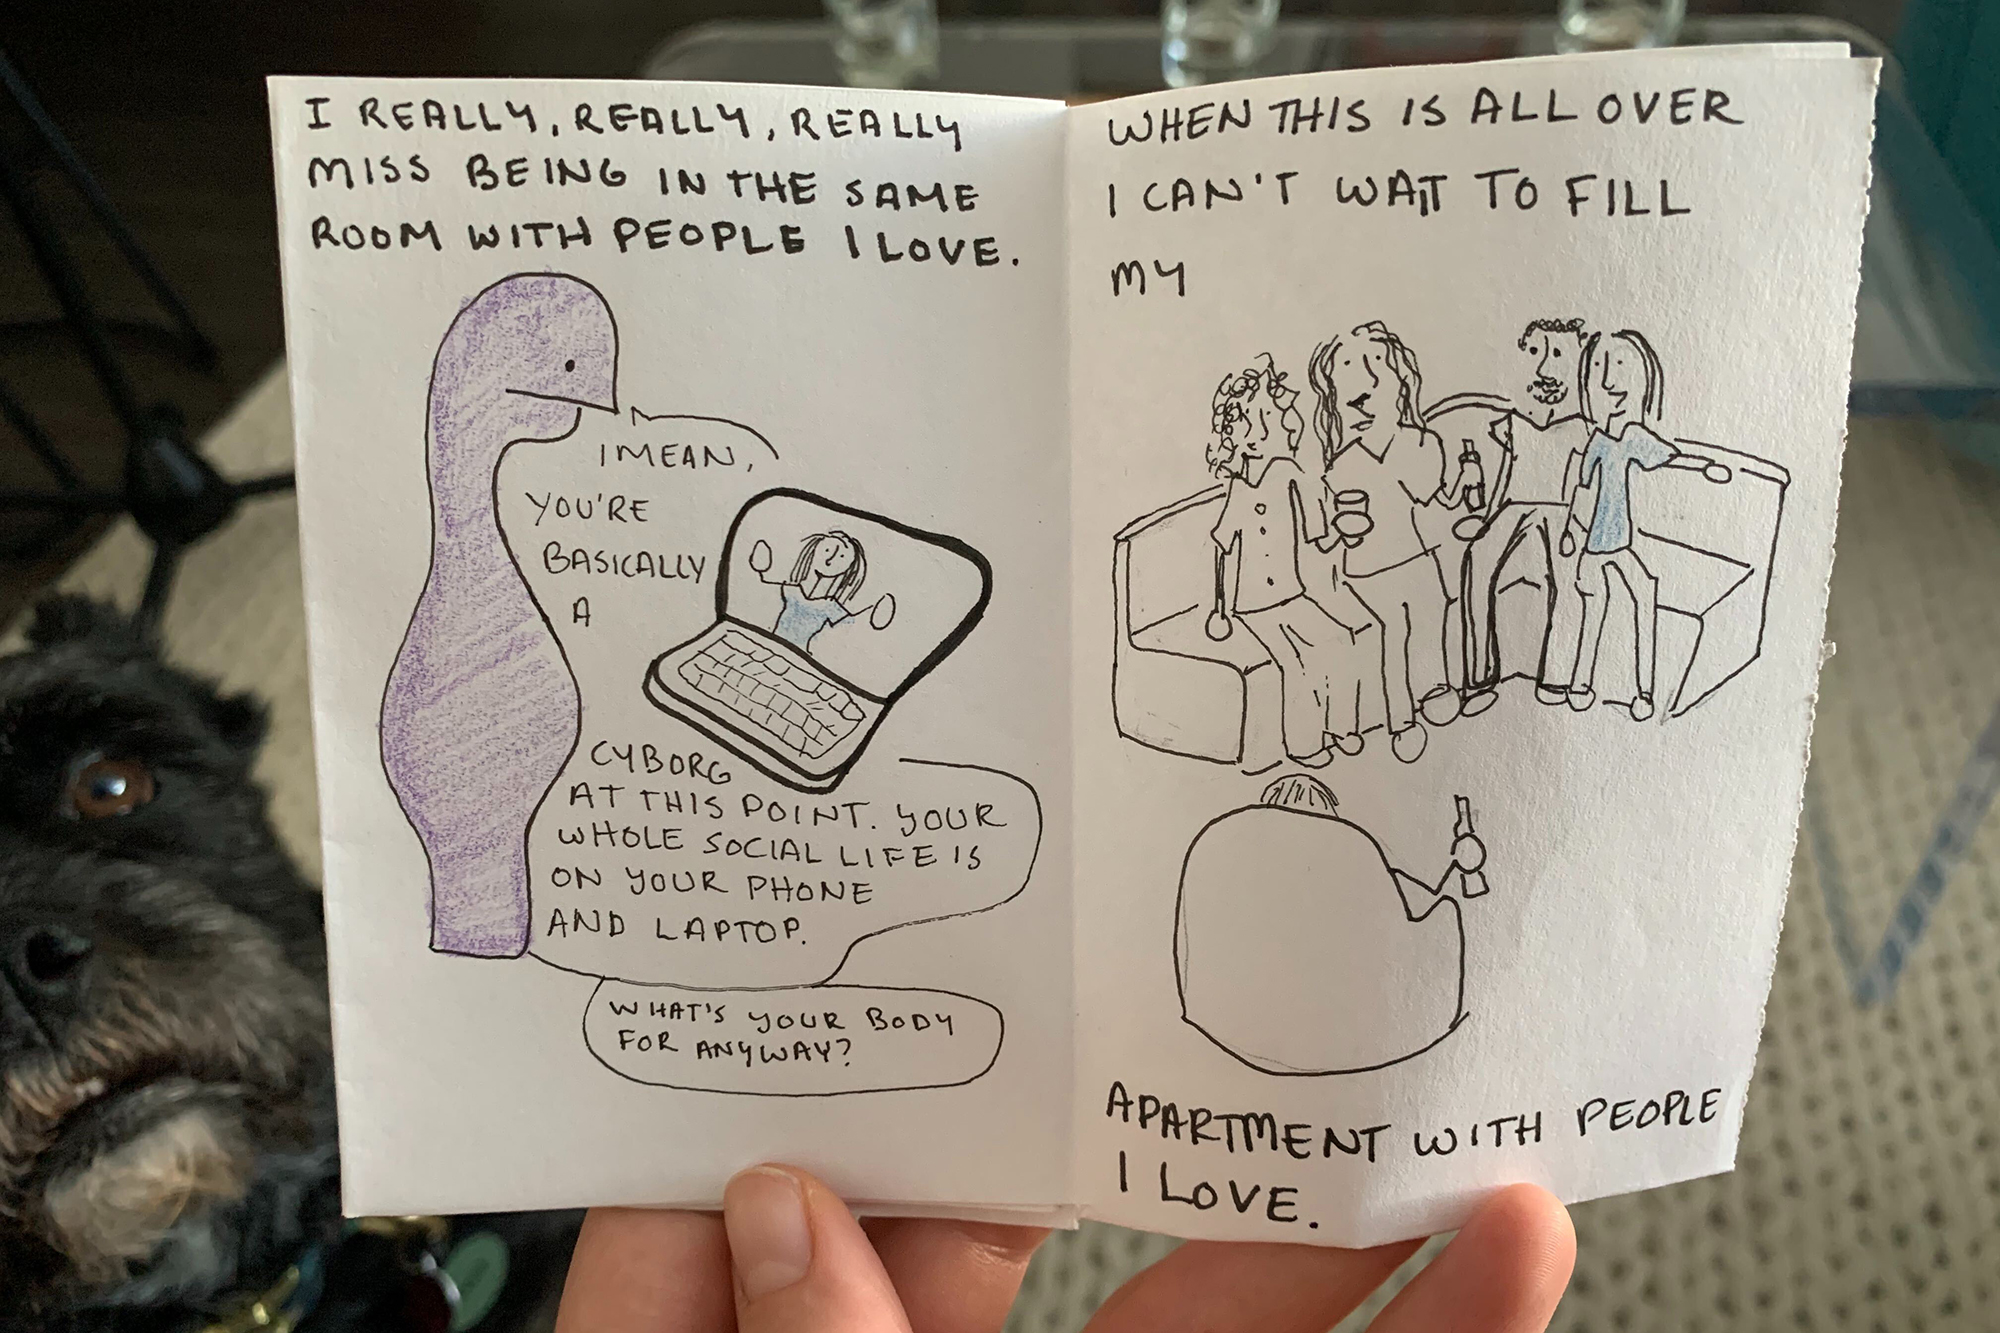 I REALLY, REALLY, REALLY
MISS BEING IN THE SAME
ROOM WITH PEOPLE I LOVE.
I MEAN,
YOU'RE
BASICALLY
A
CYBORG
AT THIS POINT. YOUR
WHOLE SOCIAL LIFE IS
ON YOUR PHONE
AND LAPTOP.
WHAT'S YOUR BODY
FOR ANYWAY?
WHEN THIS IS ALL OVER
I CAN'T WAIT TO FILL
MY
APARTMENT WITH PEOPLE
I LOVE.